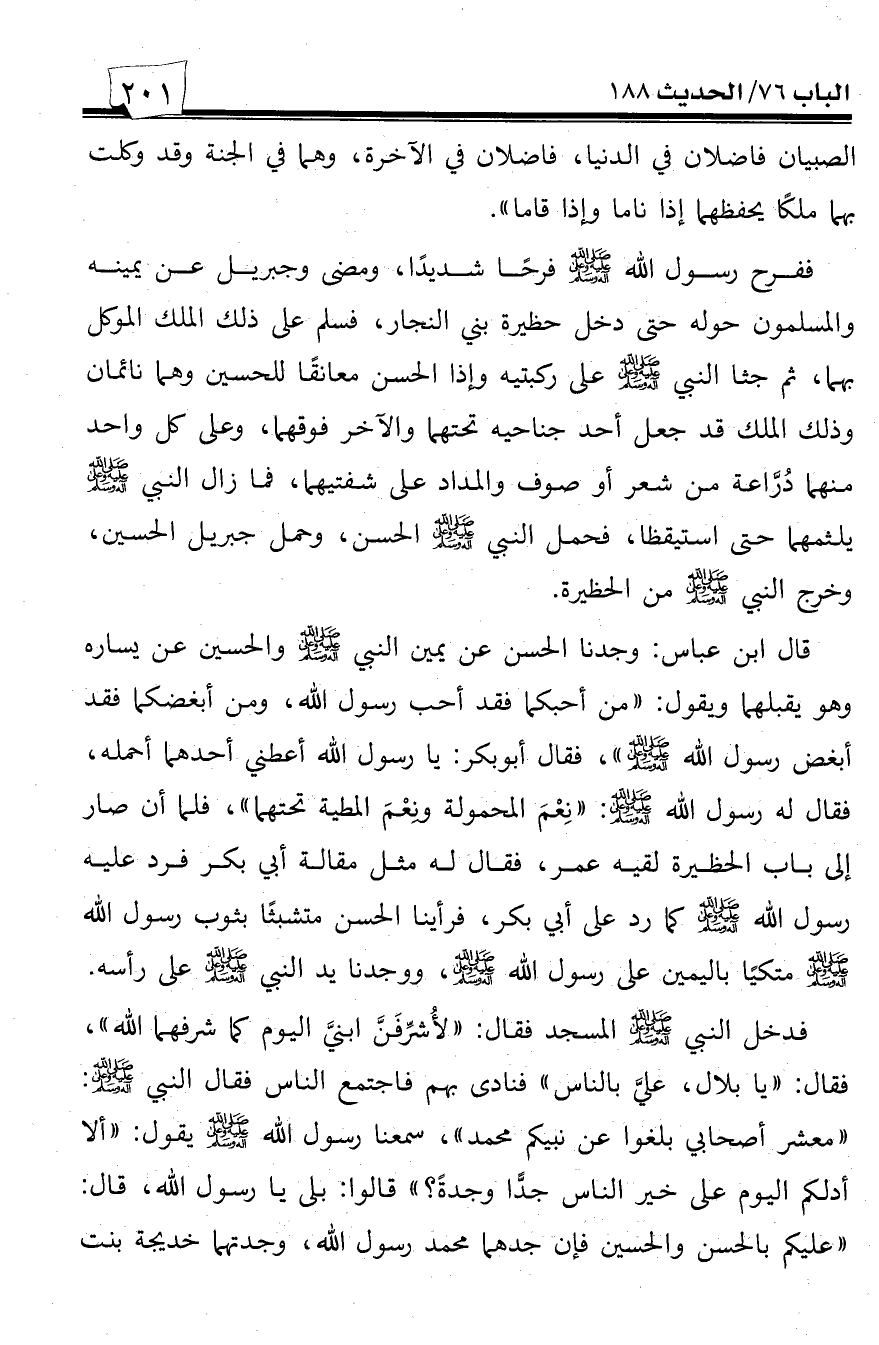 الباب ٧٦/ الحديث ١٨٨
٢٠١
الصبيان فاضلان في الدنيا، فاضلان في الآخرة، وهما في الجنة وقد وكلت
بهما ملكًا يحفظهما إذا ناما وإذا قاما».
ففرح رسول الله ﷺ فرحًا شديدًا، ومضى وجبريل عن يمينه
والمسلمون حوله حتى دخل حظيرة بني النجار، فسلم على ذلك الملك الموكل
بهما، ثم جثا النبي ﷺ على ركبتيه وإذا الحسن معانقًا للحسين وهما نائمان
وذلك الملك قد جعل أحد جناحيه تحتهما والآخر فوقهما، وعلى كل واحد
منهما دُرَّاعة من شعر أو صوف والمداد على شفتيهما، فما زال النبي ﷺ
يلثمهما حتى استيقظا، فحمل النبي ﷺ الحسن، وحمل جبريل الحسين،
وخرج النبي ﷺ من الحظيرة.
قال ابن عباس: وجدنا الحسن عن يمين النبي ﷺ والحسين عن يساره
وهو يقبلهما ويقول: «من أحبكما فقد أحب رسول الله، ومن أبغضكما فقد
أبغض رسول الله ﷺ»، فقال أبوبكر: يا رسول الله أعطني أحدهما أحمله،
فقال له رسول الله ﷺ: «نِعْمَ المحمولة ونِعْمَ المطية تحتهما»، فلما أن صار
إلى باب الحظيرة لقيه عمر، فقال له مثل مقالة أبي بكر فرد عليه
رسول الله ﷺ كما رد على أبي بكر، فرأينا الحسن متشبثًا بثوب رسول الله
ﷺ متكيًا باليمين على رسول الله ﷺ، ووجدنا يد النبي ﷺ على رأسه.
فدخل النبي ﷺ المسجد فقال: «لأُشرِّفَنَّ ابنيَّ اليوم كما شرفهما الله»،
فقال: «يا بلال، عليَّ بالناس» فنادى بهم فاجتمع الناس فقال النبي ﷺ:
«معشر أصحابي بلغوا عن نبيكم محمد»، سمعنا رسول الله ﷺ يقول: «ألا
أدلكم اليوم على خير الناس جدًّا وجدةً؟» قالوا: بلى يا رسول الله، قال:
«عليكم بالحسن والحسين فإن جدهما محمد رسول الله، وجدتهما خديجة بنت